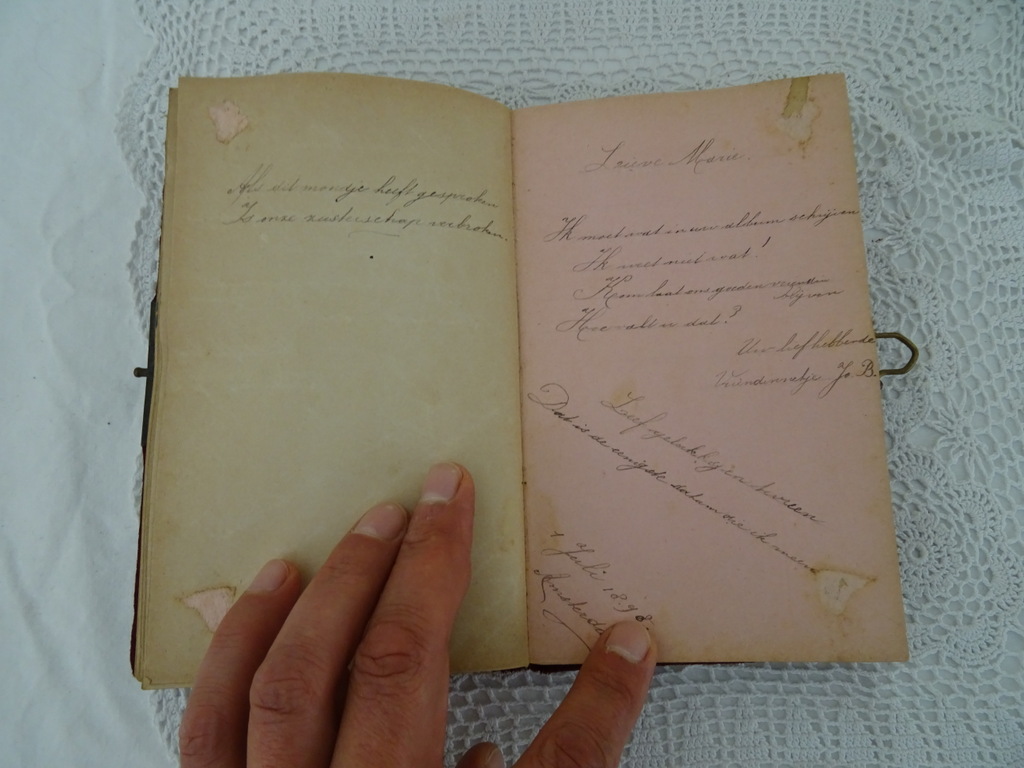 Als dit mondje heeft gesproken
Is onze zusterschap verbroken.
Lieve Marie.
Ik moet wat in uw album schrijven
Ik weet niet wat!
Kom laat ons goeden vrienden
blijven
Hoe valt u dat?
Uw liefhebbende
Vriendinnetje Jo B.
Leef gelukkig en tevreen
Dat is de eenigste datum die ik meen
1 Juli 1898